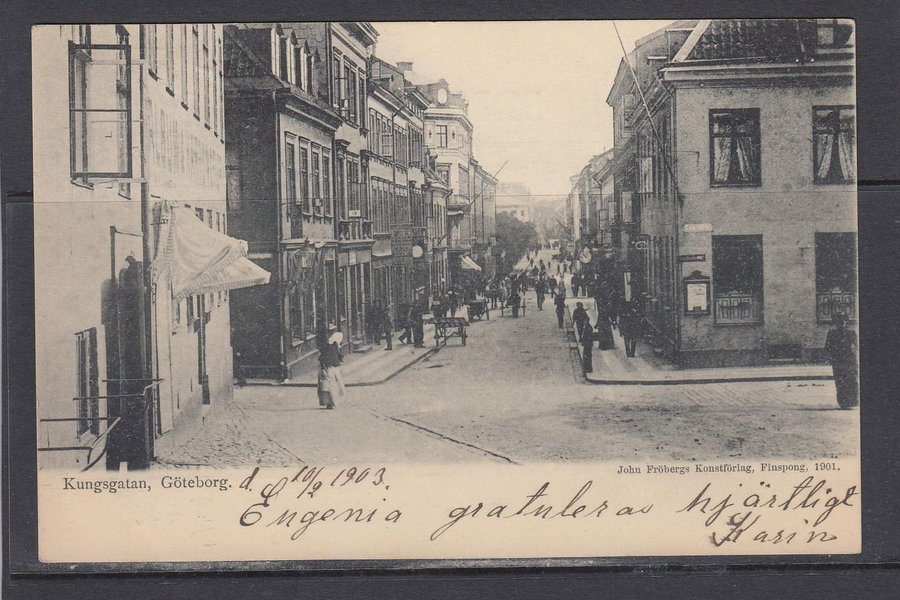 Kungsgatan, Göteborg. d. 10/9 1903.
John Fröbergs Konstförlag, Finspong, 1901.
Eugenia gratuleras hjärtligt
Karin